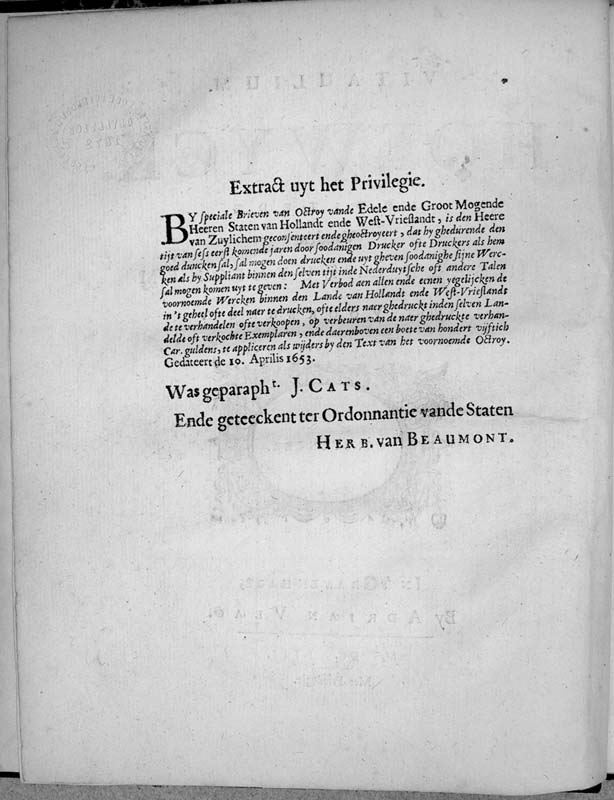 Extract uyt het Privilegie.
BY speciale Brieven van Octroy vande Edele ende Groot Mogende
Heeren Staten van Hollandt ende West-Vrieslandt, is den Heere
van Zuylichem geconsenteert ende gheoctroyeert, dat hy ghedurende den
tijt van ses eerst komende jaren door soodanigen Drucker ofte Druckers als hem
goed duncken sal, sal mogen doen drucken ende uyt gheven soodanighe sijne Werc-
ken als hy Suppliant binnen den selven tijt inde Nederduytsche oft andere Talen
sal mogen komen uyt te geven: Met Verbod aen allen ende eenen yegelijcken de
voornoemde Wercken binnen den Lande van Hollandt ende West-Vrieslandt
in 't geheel ofte deel naer te drucken, ofte elders naer ghedruckt inden selven Lan-
de te verhandelen ofte verkoopen, op verbeuren van de naer ghedruckte verhan-
delde oft verkochte Exemplaren, ende daerenboven een boete van hondert vijftich
Car. guldens, te appliceren als wijders by den Text van het voornoemde Octroy.
Gedateert de 10. Aprilis 1653.
Was geparapht. J. CATS.
Ende geteeckent ter Ordonnantie vande Staten
HERB. van BEAUMONT.